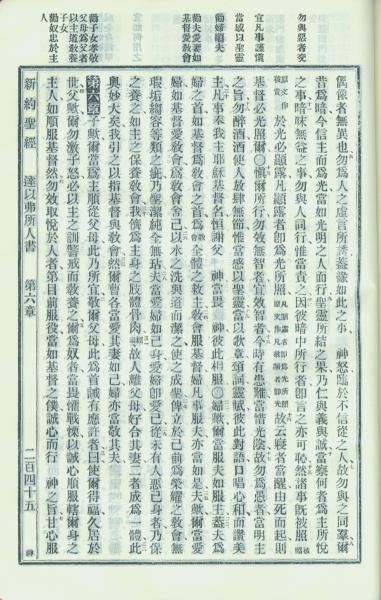 勿與惡者交
宜凡事謹愼
當感以聖靈
勸婦順夫
勸夫愛妻如
基督愛敎會
勸子女孝敬
父母爲父者
以主道敎養
子女
勸奴忠於主
人
偶像者無異也勿爲人之虛言所誘蓋緣如此之事 神怒臨於不信從之人故勿與之同羣爾
昔爲暗今信主而爲光當如光明之人而行聖靈所結之果乃仁與義與誠當察何者爲主所悅
之事暗昧無益之事勿與人同行惟當責之因彼暗中所行者卽言之亦可恥然諸事旣被照
於光必顯露凡顯露者卽爲光所照故云寐者當醒由死而起則
基督必光照爾○愼爾所行勿效無智者宜效智者今時有患難當惜光陰故勿爲愚者當明主
之旨勿醉酒酒使人放肆無節惟當感以聖靈當以歌章頌詞靈賦彼此對語口唱心和而讚美
主凡事奉我主耶穌基督名恒謝父 神當畏 神彼此相服○婦歟爾當服夫如服主蓋夫爲
婦之首如基督爲敎會之首爲全體之救主敎會服基督婦凡事服夫亦當如是夫歟爾當愛
婦如基督愛敎會爲敎會舍己以水之洗與道而潔之使之成聖俾立於己前爲榮耀之敎會無
瑕垢縐容等類之疵乃聖潔純全無玷夫當愛婦如己身愛婦卽愛己從未有人惡己身者乃保
之養之如主之保養敎會我儕爲主身之肢體骨肉經云故人離父母好合其妻二者成爲一體此
奧妙大矣我引之以指基督與敎會然爾曹各當愛其妻如己婦亦當敬其夫
第六章 子歟爾當爲主順從父母此乃所宜敬爾父母此爲首誡有應許者曰使爾得福久居於
世父歟爾勿激子怒必以主之訓警戒而敎養之爾爲奴者當畏懼戰慄以誠心順服轄爾身之
主人如順服基督然勿效取悅於人者第目前服役當如基督之僕誠心而行 神之旨甘心服
新約聖經 達以弗所人書 第六章 二百四十五